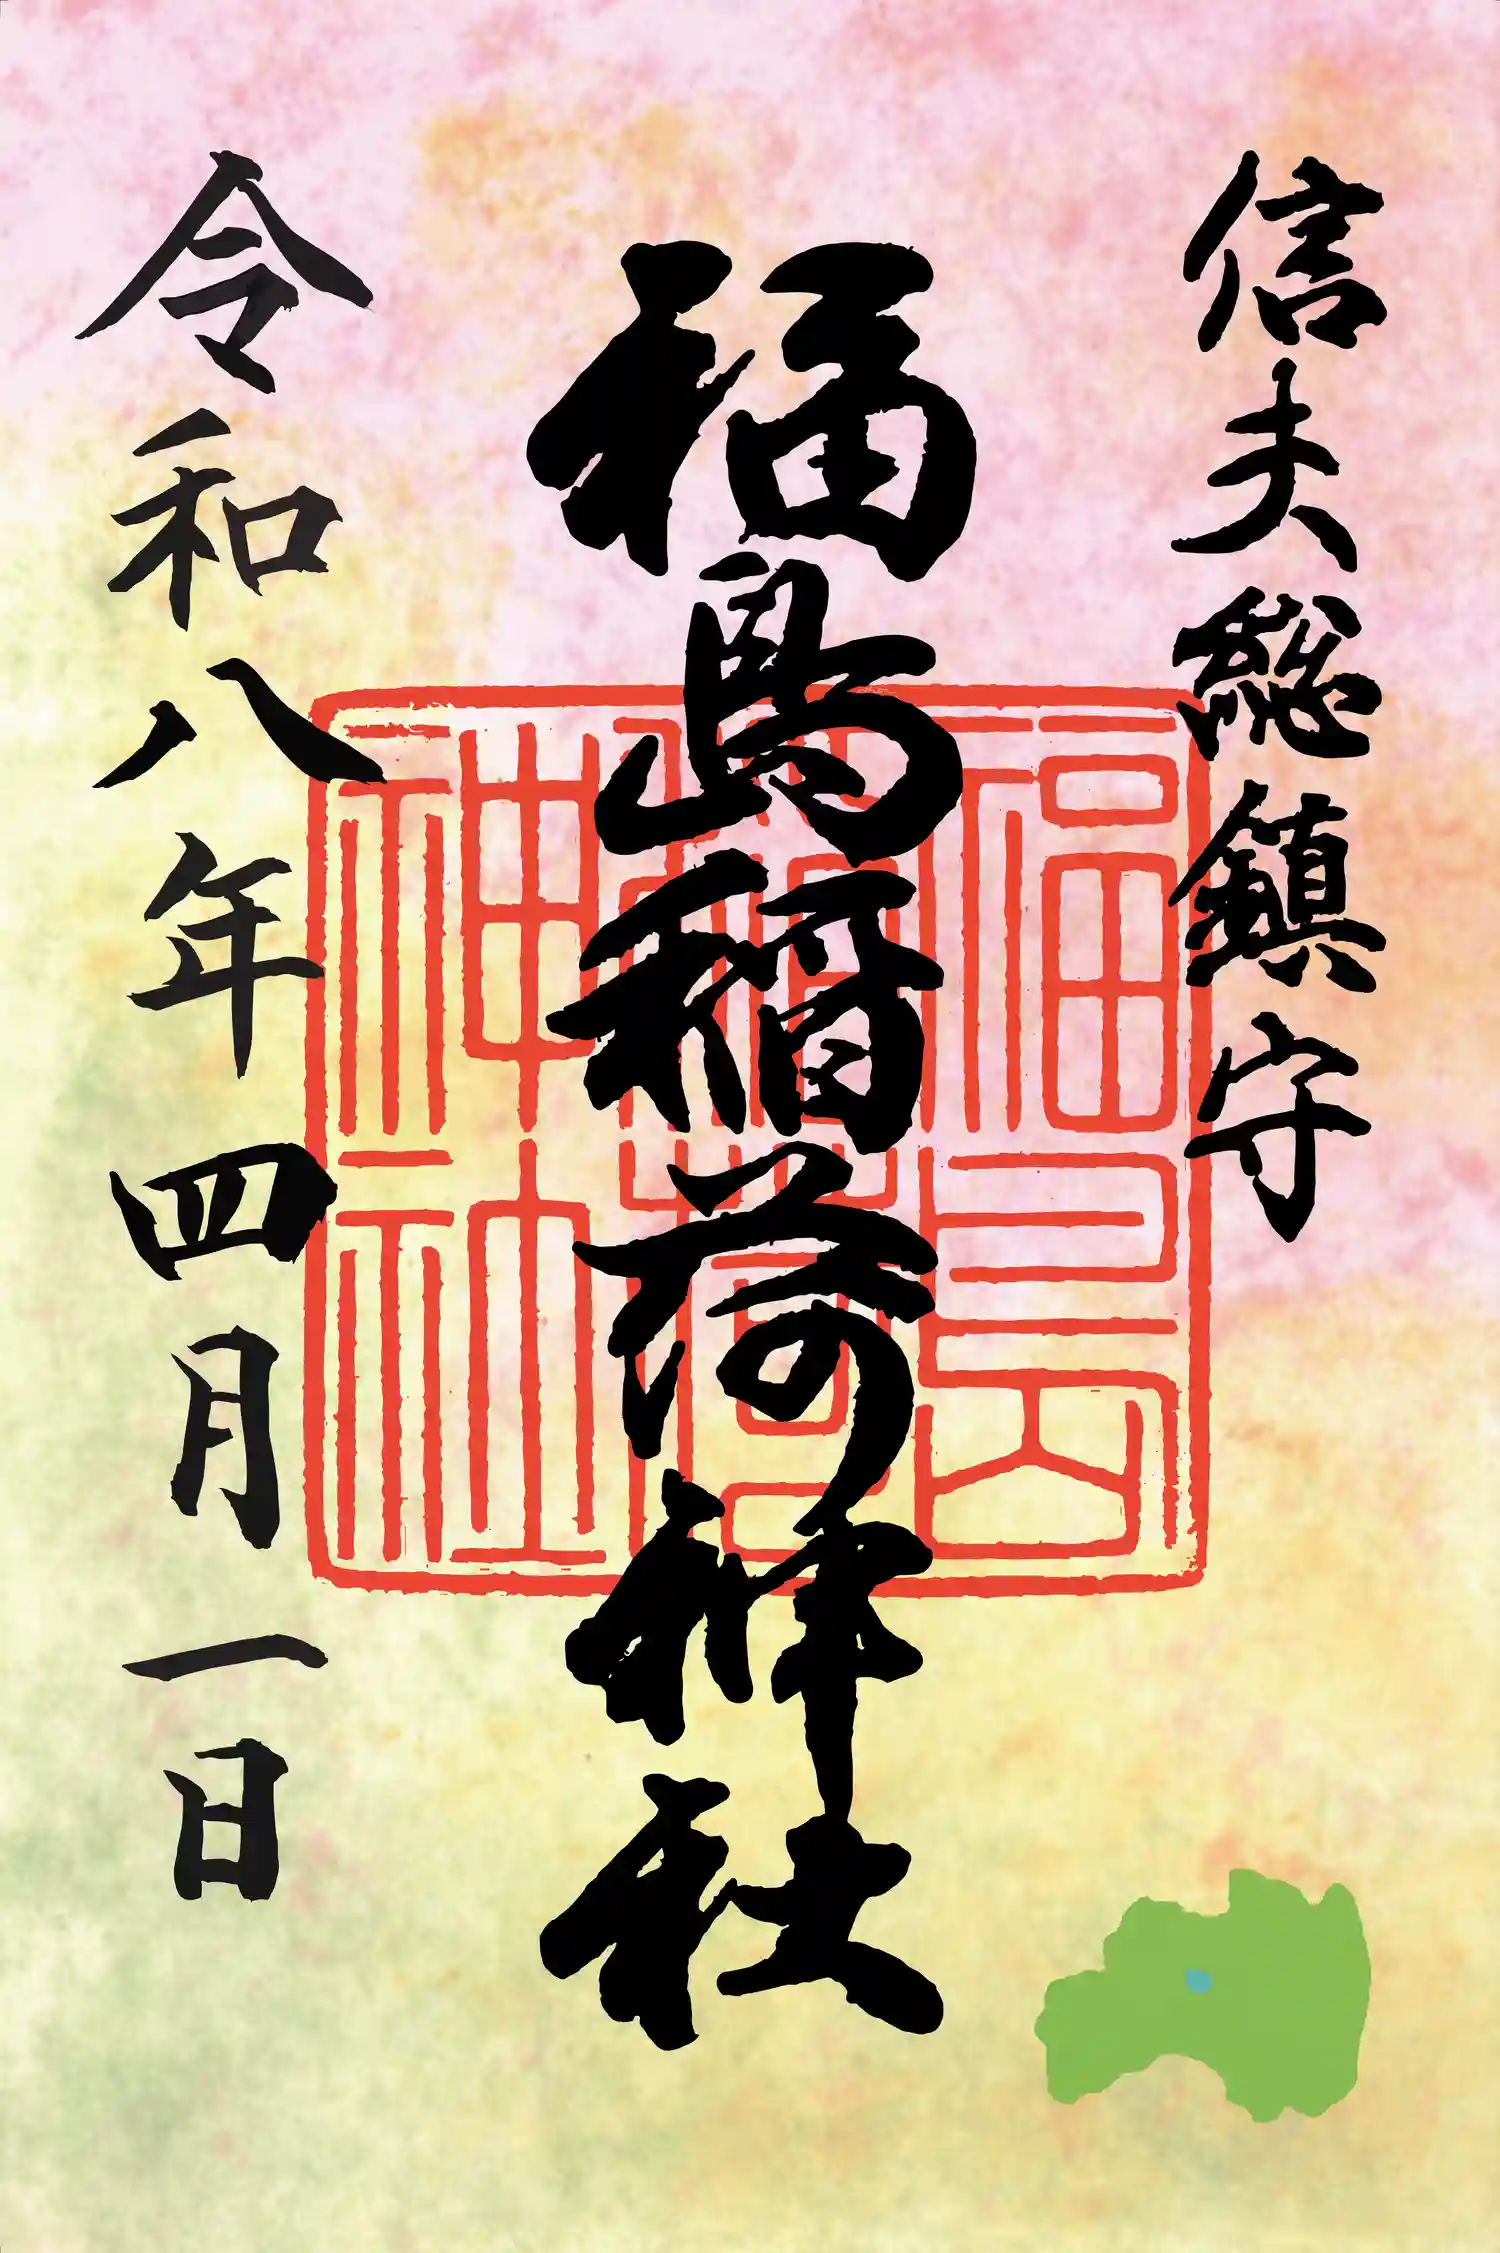 信夫総鎮守
福島稲荷神社
福島稲荷神社
令和八年四月一日